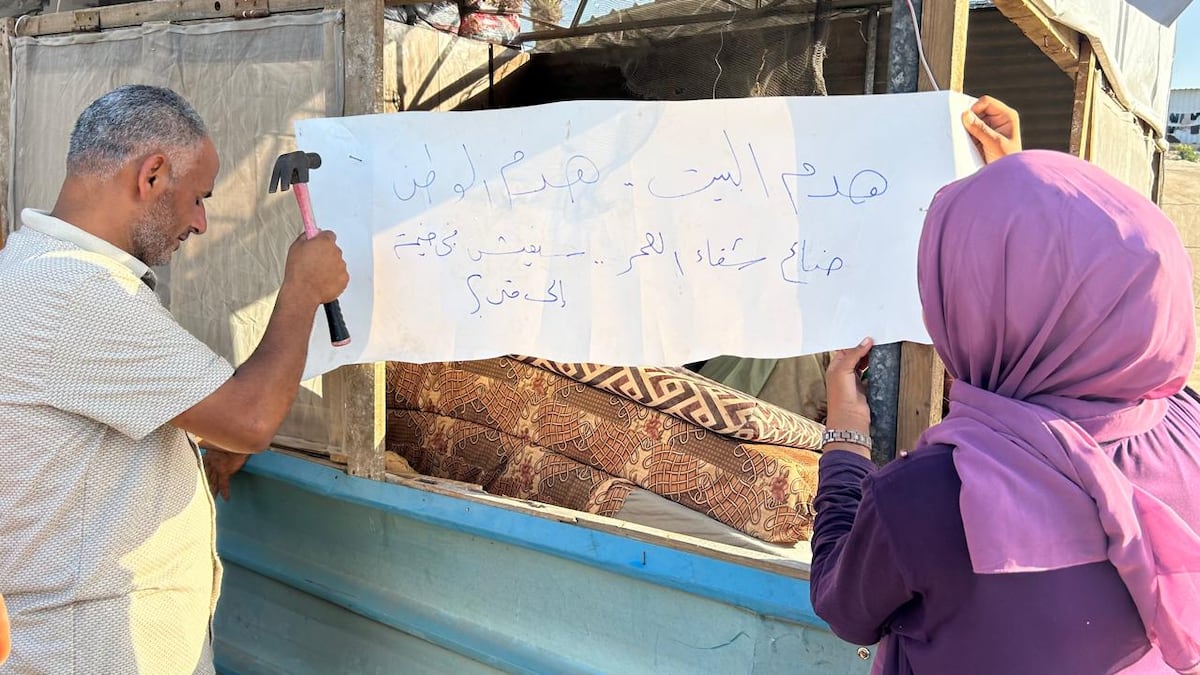 هدم البيت - هدم الوطن
ضاع شقاء العمر .. سنعيش في خيمة
إلى متى ؟